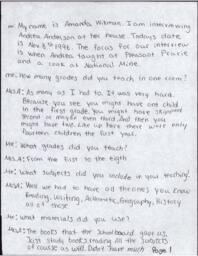 me: My name is Amanda Wikman. I am interviewing
Andrea Anderson at her house. Todays date
is Nov 8th 1998. The focus for our interview
is when Andrea taught at Pleasant Prairie
and a cook at National Mine.
me: How many grades did you teach in one room?
Mrs.A: As many as I had to. It was very hard.
Because you see you might have one child
in the first grade. You might have skipped
second or maybe even third. And then you
might have. Like up here there were only
fourteen children the first year.
Me: What grades did you teach?
Mrs.A: From the first to the eigth
Me: What subjects did you include in your teaching?
Mrs.A: Well we had to have all threads you know
Reading, Writing, Arithmetic, Geography, History
all of those
Me: What materials did you use?
Mrs.A: The books that the school board gave us.
Just study books, reading all the subjects
of course as well. Didn't have much
Page 1